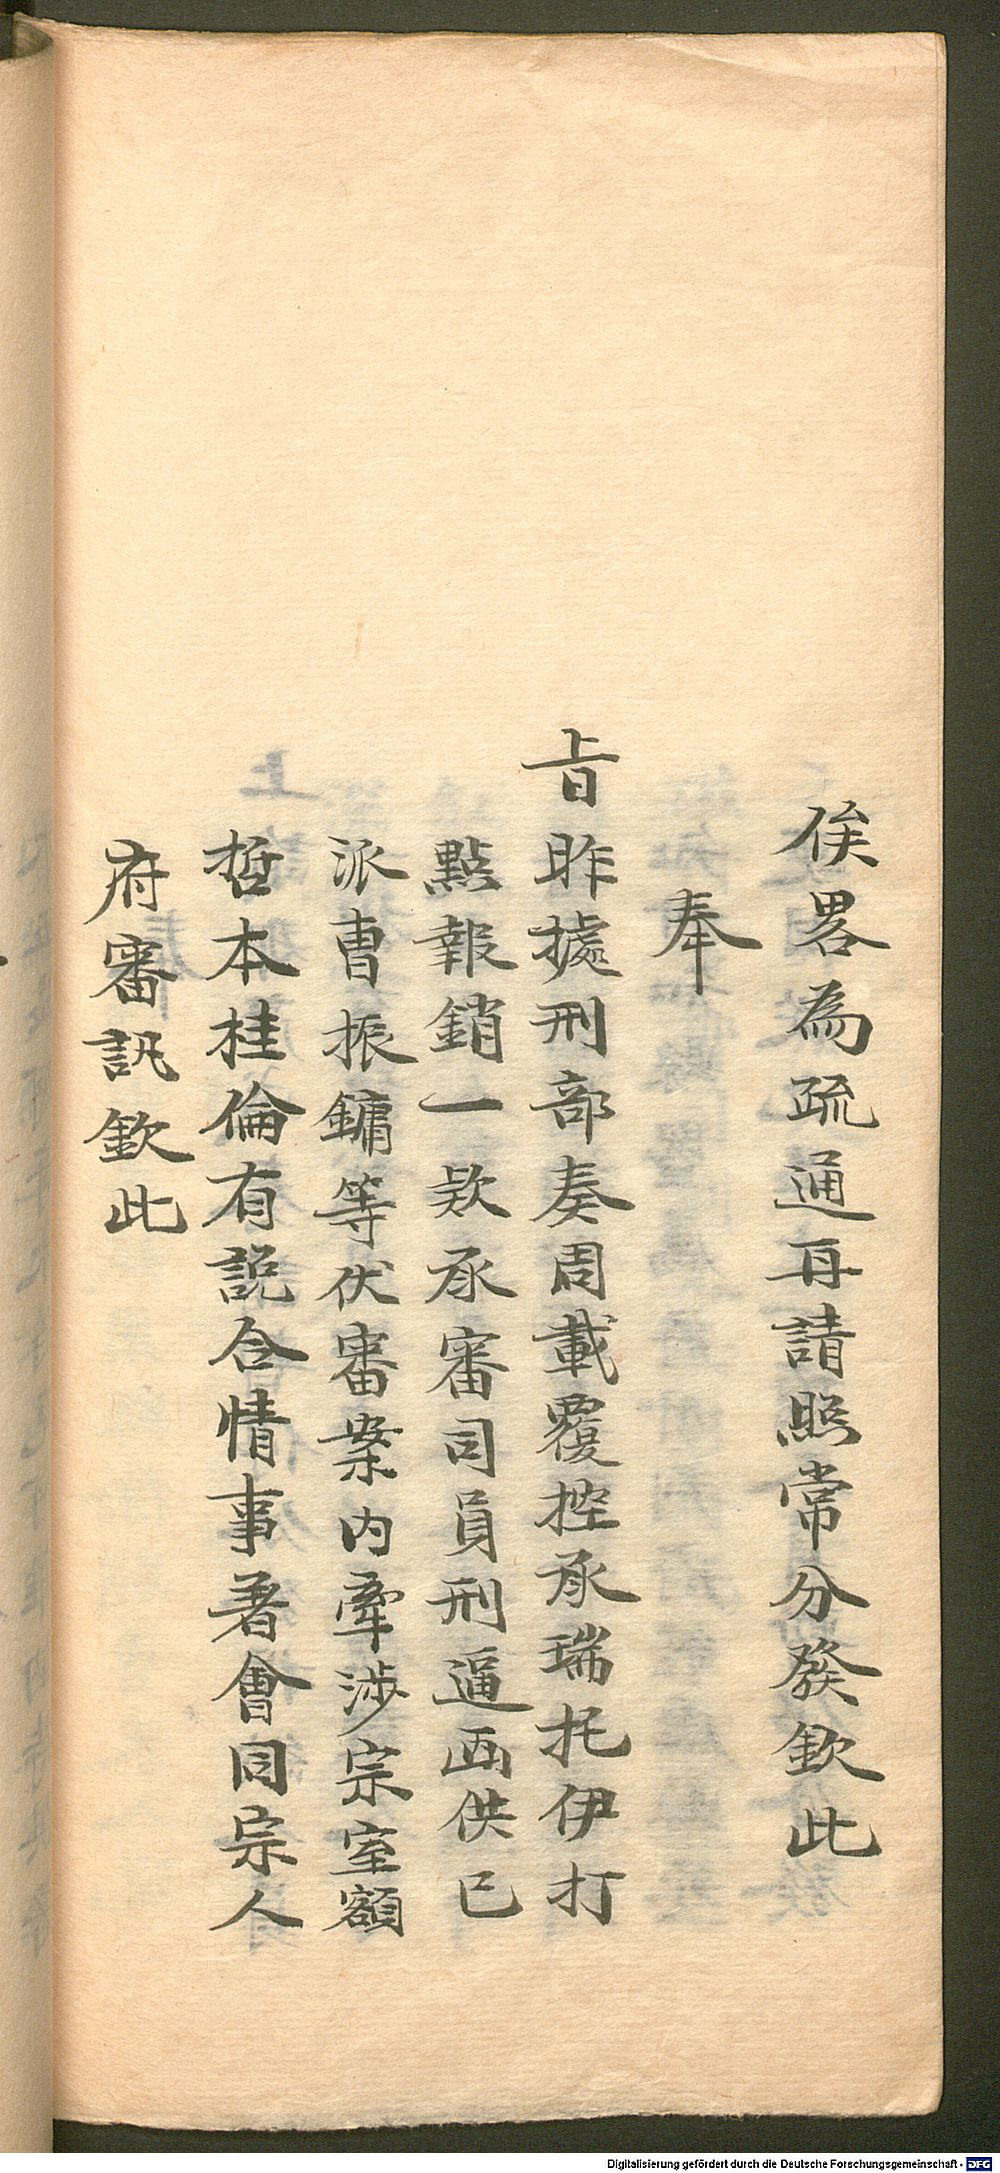 俟畧為疏通再請照常分發欽此
奉
旨昨據刑部奏周載覆控承瑞托伊打
點報銷一欵承審司員刑逼画供已
派曹振鏞等伏審案内牽涉宗室額
哲本桂倫有説合情事著會同宗人
府審訊欽此
Digitalisierung gefördert durch die Deutsche Forschungsgemeinschaft - DFG